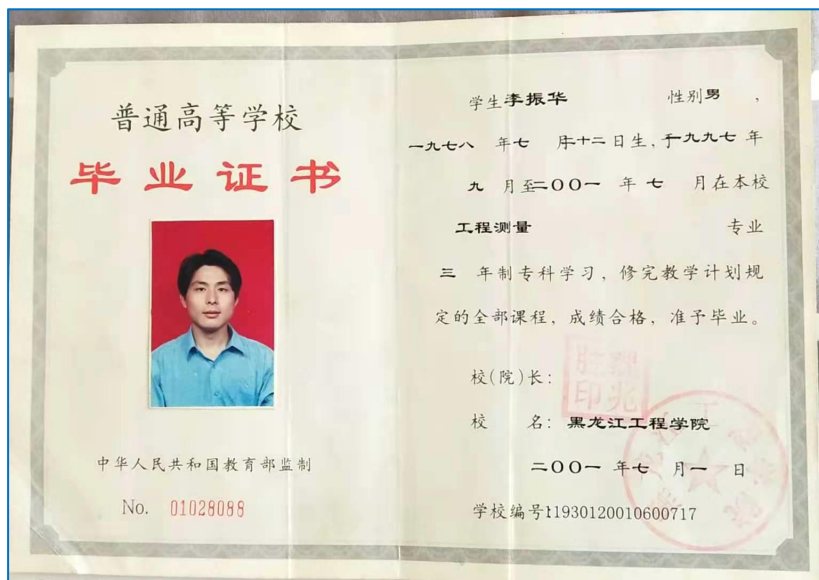 普通高等学校
毕业证书
中华人民共和国教育部监制
No. 01028088
学生李振华 性别男，
一九七八 年七 月十二日生，于一九九七 年
九 月至二〇〇一 年 七 月在本校
工程测量 专业
三 年制专科学习，修完教学计划规
定的全部课程，成绩合格，准予毕业。
校(院)长：
校 名：黑龙江工程学院
二〇〇一 年七 月一 日
学校编号:11930120010600717